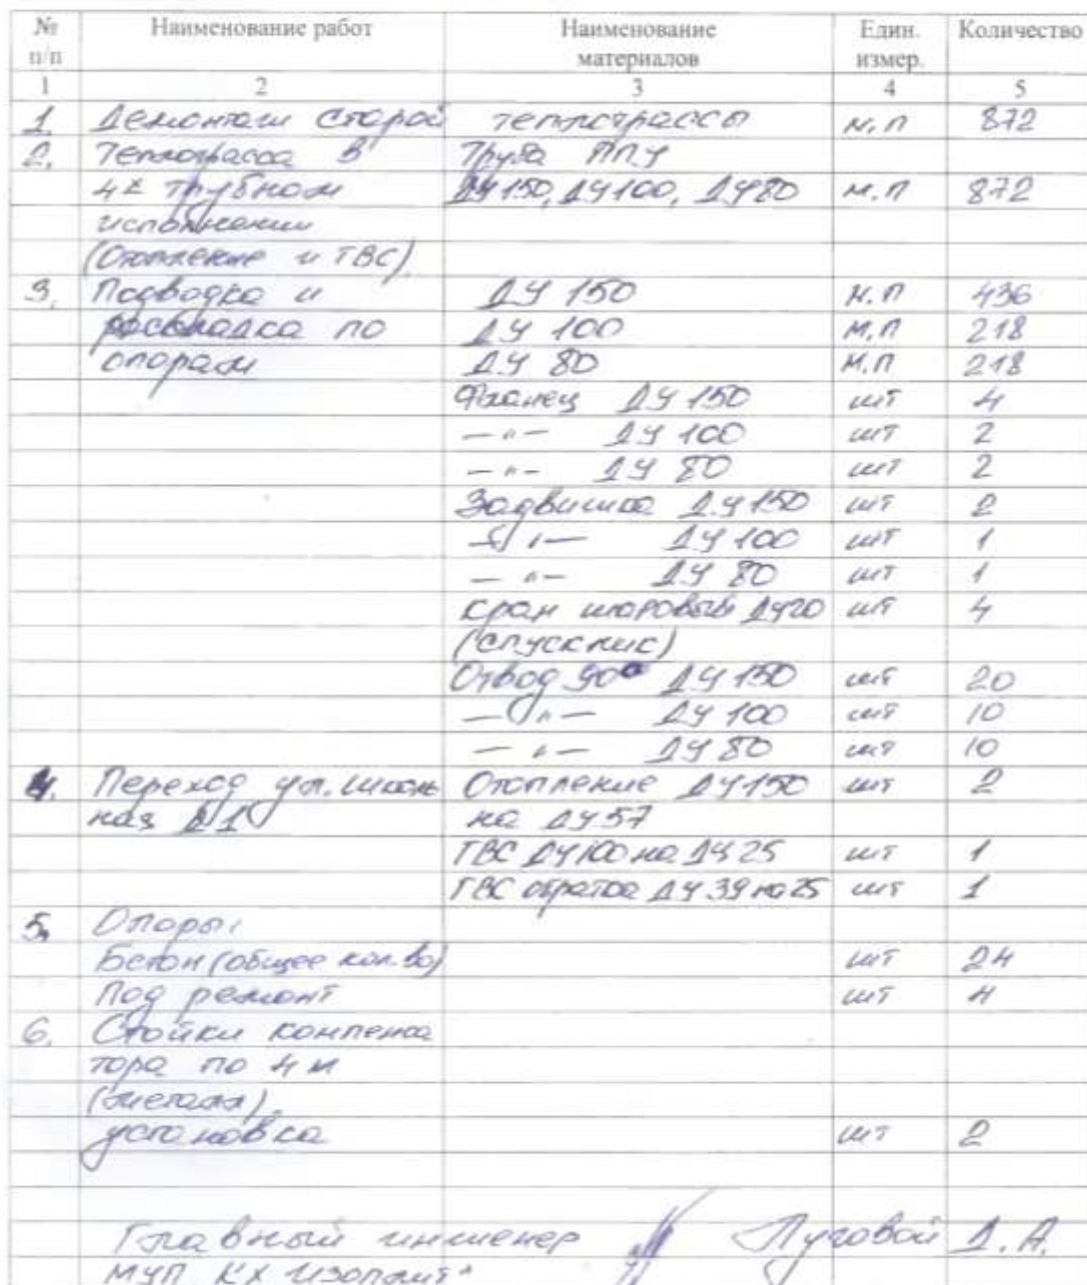 № Наименование работ Наименование Един. Количество
п/п материалов измер.
1 2 3 4 5
1. Демонтаж старой теплотрассы м.п 872
2. Теплотрасса в Труба ППУ
4х трубном ДУ150, ДУ100, ДУ80 м.п 872
исполнении
(Отопление и ГВС)
3. Подводка и ДУ 150 м.п 436
раскладка по ДУ 100 м.п 218
опорам ДУ 80 м.п 218
Фланец ДУ 150 шт 4
—"— ДУ 100 шт 2
—"— ДУ 80 шт 2
Задвижка ДУ150 шт 2
—"— ДУ 100 шт 1
—"— ДУ 80 шт 1
кран шаровый ДУ20 шт 4
(спускник)
Отвод 90° ДУ 150 шт 20
—"— ДУ 100 шт 10
—"— ДУ 80 шт 10
4. Переход ул. Школь Отопление ДУ150 шт 2
ная Д1 на ДУ57
ГВС ДУ100 на ДУ 25 шт 1
ГВС обратка ДУ 39 на 25 шт 1
5. Опоры:
Бетон (общее кол.во) шт 24
Под ремонт шт 4
6. Стойки компенса
тора по 4 м
(металл).
установка шт 2
Главный инженер Луговой Д. А.
МУП КХ Изоплит"